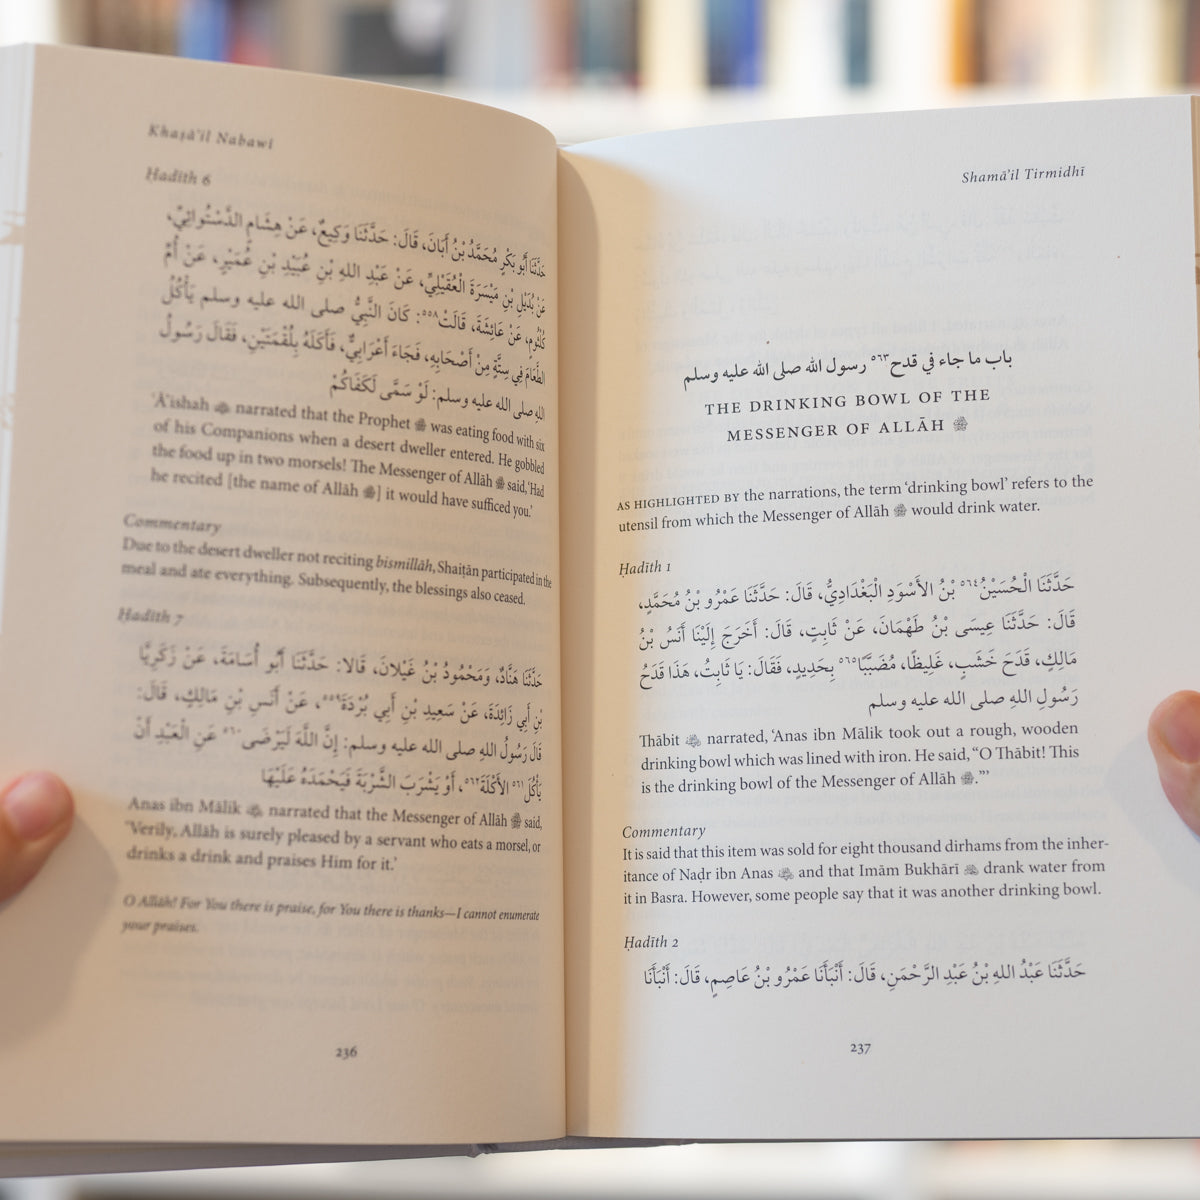 Khaṣā'il Nabawī
Ḥadīth 6
حَدَّثَنَا أَبُو بَكْرٍ مُحَمَّدُ بْنُ أَبَانَ، قَالَ: حَدَّثَنَا وَكِيعٌ، عَنْ هِشَامٍ الدَّسْتُوَائِيِّ،
عَنْ بُدَيْلِ بْنِ مَيْسَرَةَ الْعُقَيْلِيِّ، عَنْ عَبْدِ اللهِ بْنِ عُبَيْدِ بْنِ عُمَيْرٍ، عَنْ أُمِّ
كُلْثُومٍ، عَنْ عَائِشَةَ، قَالَتْ٥٥٨: كَانَ النَّبِيُّ صلى الله عليه وسلم يَأْكُلُ
الطَّعَامَ فِي سِتَّةٍ مِنْ أَصْحَابِهِ، فَجَاءَ أَعْرَابِيٌّ، فَأَكَلَهُ بِلُقْمَتَيْنِ، فَقَالَ رَسُولُ
اللهِ صلى الله عليه وسلم: لَوْ سَمَّى لَكَفَاكُمْ
'Ā'ishah ﷺ narrated that the Prophet ﷺ was eating food with six
of his Companions when a desert dweller entered. He gobbled
the food up in two morsels! The Messenger of Allāh ﷺ said, 'Had
he recited [the name of Allāh ﷻ] it would have sufficed you.'
Commentary
Due to the desert dweller not reciting bismillāh, Shaiṭān participated in the
meal and ate everything. Subsequently, the blessings also ceased.
Ḥadīth 7
حَدَّثَنَا هَنَّادٌ، وَمَحْمُودُ بْنُ غَيْلَانَ، قَالَا: حَدَّثَنَا أَبُو أُسَامَةَ، عَنْ زَكَرِيَّا
بْنِ أَبِي زَائِدَةَ، عَنْ سَعِيدِ بْنِ أَبِي بُرْدَةَ٥٥٩، عَنْ أَنَسِ بْنِ مَالِكٍ، قَالَ:
قَالَ رَسُولُ اللهِ صلى الله عليه وسلم: إِنَّ اللَّهَ لَيَرْضَى٥٦٠ عَنِ الْعَبْدِ أَنْ
يَأْكُلَ٥٦١ الْأَكْلَةَ٥٦٢، أَوْ يَشْرَبَ الشَّرْبَةَ فَيَحْمَدَهُ عَلَيْهَا
Anas ibn Mālik narrated that the Messenger of Allāh ﷺ said,
'Verily, Allāh is surely pleased by a servant who eats a morsel, or
drinks a drink and praises Him for it.'
O Allāh! For You there is praise, for You there is thanks—I cannot enumerate
your praises.
236
Shamā'il Tirmidhī
باب ما جاء في قدح٥٦٣ رسول الله صلى الله عليه وسلم
THE DRINKING BOWL OF THE
MESSENGER OF ALLĀH ﷺ
AS HIGHLIGHTED BY the narrations, the term 'drinking bowl' refers to the
utensil from which the Messenger of Allāh ﷺ would drink water.
Ḥadīth 1
حَدَّثَنَا الْحُسَيْنُ٥٦٤ بْنُ الأَسْوَدِ الْبَغْدَادِيُّ، قَالَ: حَدَّثَنَا عَمْرُو بْنُ مُحَمَّدٍ،
قَالَ: حَدَّثَنَا عِيسَى بْنُ طَهْمَانَ، عَنْ ثَابِتٍ، قَالَ: أَخْرَجَ إِلَيْنَا أَنَسُ بْنُ
مَالِكٍ، قَدَحَ خَشَبٍ، غَلِيظًا، مُضَبَّبًا٥٦٥ بِحَدِيدٍ، فَقَالَ: يَا ثَابِتُ، هَذَا قَدَحُ
رَسُولِ اللهِ صلى الله عليه وسلم
Thābit narrated, 'Anas ibn Mālik took out a rough, wooden
drinking bowl which was lined with iron. He said, "O Thābit! This
is the drinking bowl of the Messenger of Allāh ﷺ."'
Commentary
It is said that this item was sold for eight thousand dirhams from the inher-
itance of Naḍr ibn Anas and that Imām Bukhārī drank water from
it in Basra. However, some people say that it was another drinking bowl.
Ḥadīth 2
حَدَّثَنَا عَبْدُ اللهِ بْنُ عَبْدِ الرَّحْمَنِ، قَالَ: أَنْبَأَنَا عَمْرُو بْنُ عَاصِمٍ، قَالَ: أَنْبَأَنَا
237